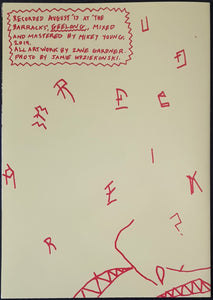 RECORDED AUGUST '17 AT 'THE
BARRACKS', GEELONG, MIXED
AND MASTERED BY MIKEY YOUNG.
2019.
ALL ARTWORK BY ZANE GARDNER.
PHOTO BY JAMIE WDZIEKONSKI.
R E C
I
R E K
A R ?